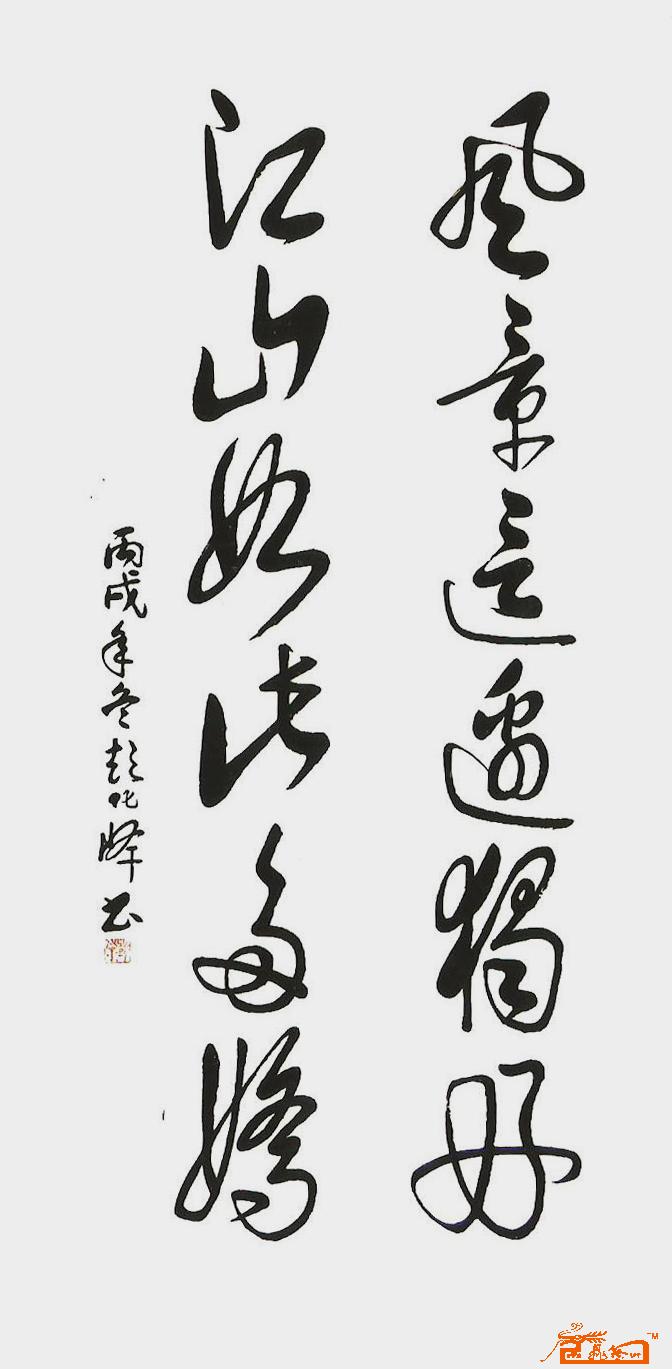 風景這邊獨好
江山如此多嬌
丙戌年冬彭峰书